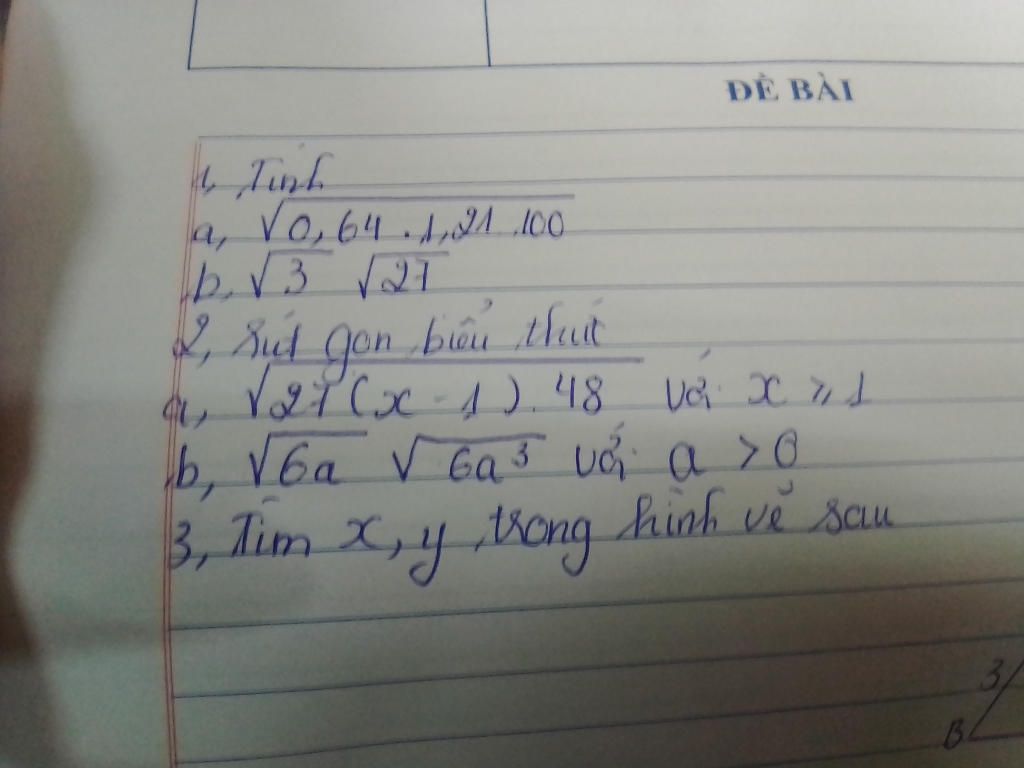 ĐỀ BÀI
1, Tính
a, √0,64 . 1,21 . 100
b, √3 √27
2, Rút gọn biểu thức
a, √27(x - 1) . 48 với x ≥ 1
b, √6a √6a³ với a > 0
3, Tìm x, y trong hình vẽ sau
3
B